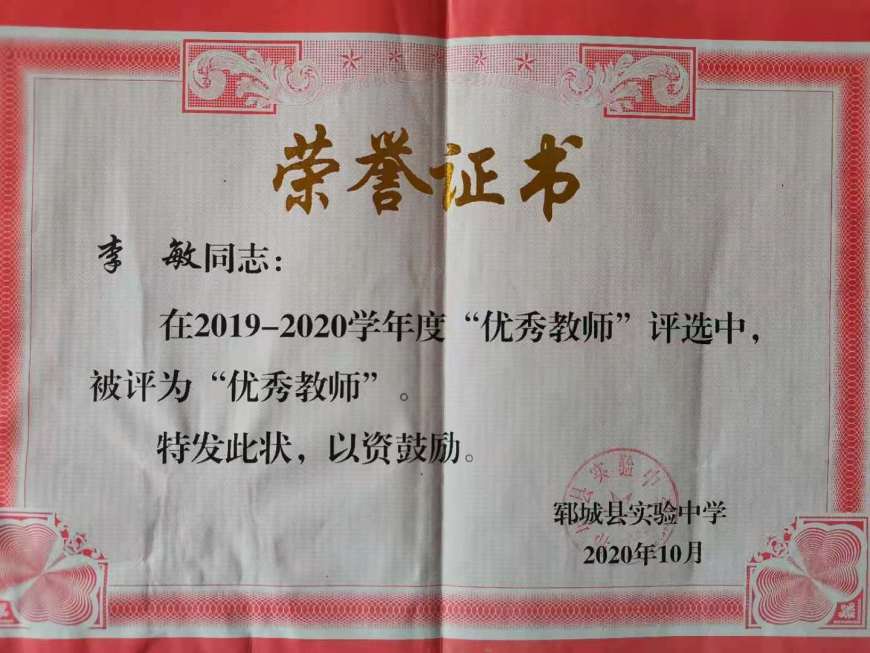 荣誉证书
李 敏同志：
在2019-2020学年度“优秀教师”评选中，
被评为“优秀教师”。
特发此状，以资鼓励。
郓城县实验中学
2020年10月